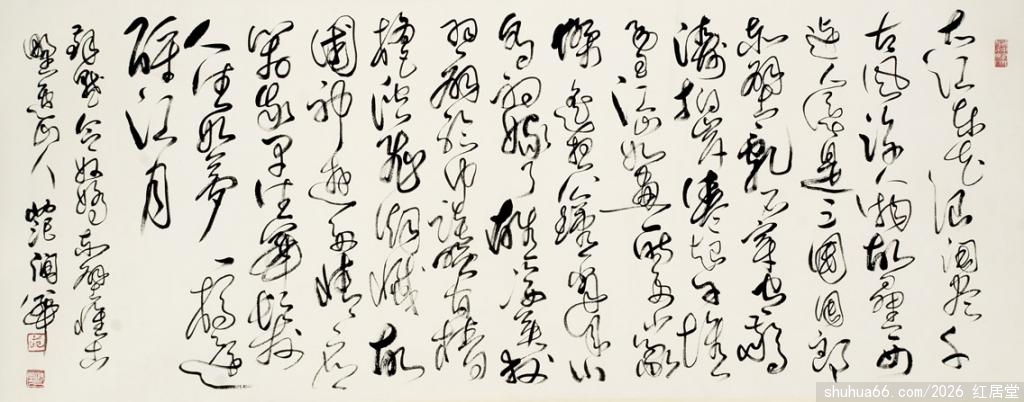 大江東去浪淘盡千
古風流人物故壘西
邊人道是三國周郎
赤壁亂石穿空驚
濤拍岸捲起千堆
雪江山如畫一時多少豪
傑遙想公瑾當年小
喬初嫁了雄姿英發
羽扇綸巾談笑間檣
櫓灰飛煙滅故
國神遊多情應
笑我早生華髮
人生如夢一樽還
酹江月
蘇軾念奴嬌赤壁懷古
山人 范潤華
shuhua66.com/2026 红居堂